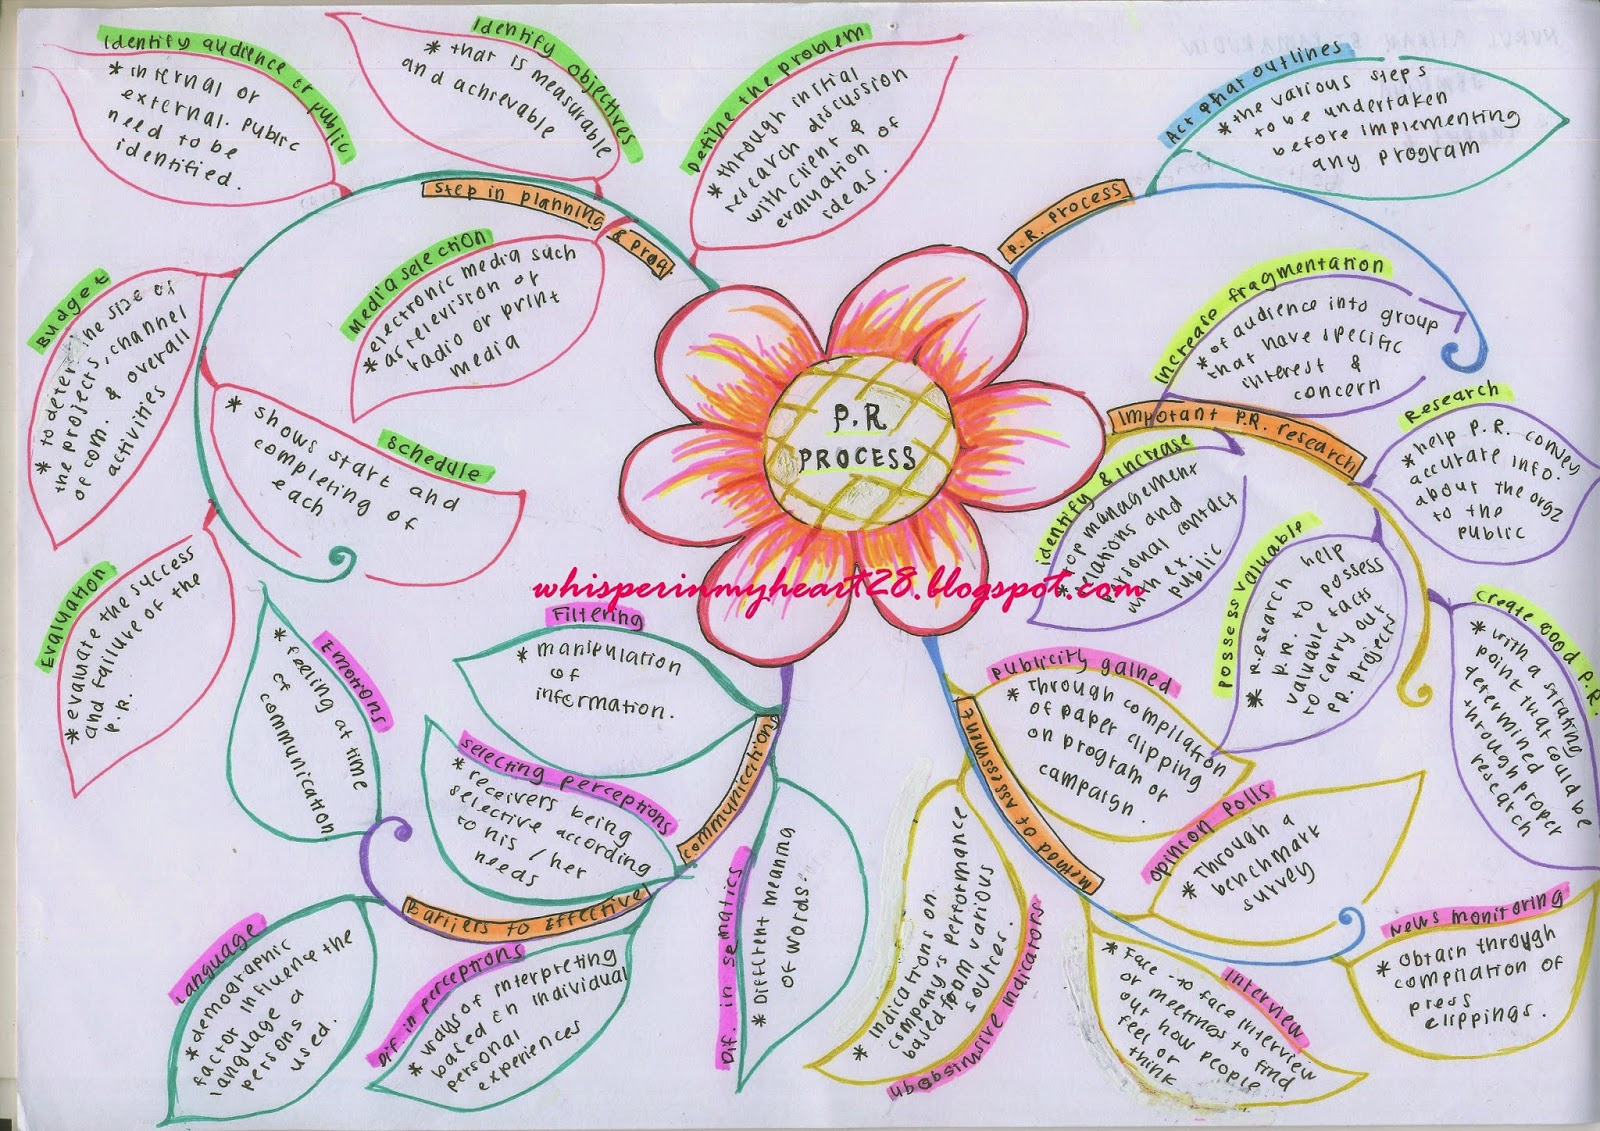 P.R
PROCESS
whisperinmyheart28.blogspot.com
Step in planning
& prog.
Identify audience or public
* internal or
external. public
need to be
identified.
Identify objectives
* that is measurable
and achievable
Define the problem
* through initial
research discussion
with client &
evaluation of
ideas.
Media selection
* electronic media such
as television or
radio or print
media
Budget
* to determine size of
the projects, channel
of com. & overall
activities
Schedule
* shows start and
completing of
each
Evaluation
* evaluate the success
and failure of the
P.R.
P.R. Process
Act that outlines
* the various steps
to be undertaken
before implementing
any program
Impotant P.R. research
Increase fragmentation
* of audience into group
that have specific
interest &
concern
Research
* help P.R. convey
accurate info.
about the orgz
to the
public
identify & increase
* top management
relations and
personal contact
with ex.
public
Possess valuable
* research help
P.R. to possess
valuable facts
to carry out
P.R. projects
Create good P.R.
* with a strating
point that could be
determined
through proper
research
Method of Assessment
Publicity gained
* Through compilation
of paper clipping
on program or
campaign.
Opinion Polls
* Through a
benchmark
survey
News monitoring
* Obtain through
compilation of
press
clippings.
Interview
* Face-to face interview
or meetings to find
out how people
feel or
think
indicators
* Indications on
company's performance
based from various
sources.
Barriers to Effective
communication
Filtering
* manipulation
of
information.
Selecting perceptions
* receivers being
selective according
to his / her
needs
Emotions
* feeling at time
of
communication
Language
* demographic
factor influence the
language a
persons
used.
Dif. in perceptions
* ways of interpreting
based on individual
personal
experiences
Dif. in sematics
* Different meaning
of words.